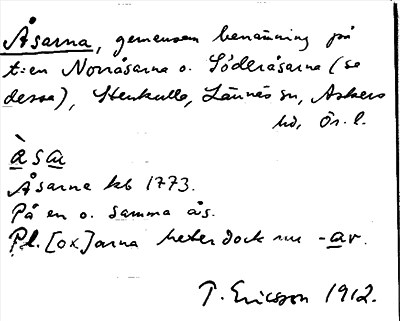 Åsarna, gemensam benämning på
t:en Norråsarna o. Söderåsarna (se
dessa), Stenkulla, Lännäs sn, Askers
hd, Ör. l.
àsa
Åsarne kb 1773.
På en o. samma ås.
Pl. [ox]arna heter dock nu -ar.
T. Ericsson 1912.